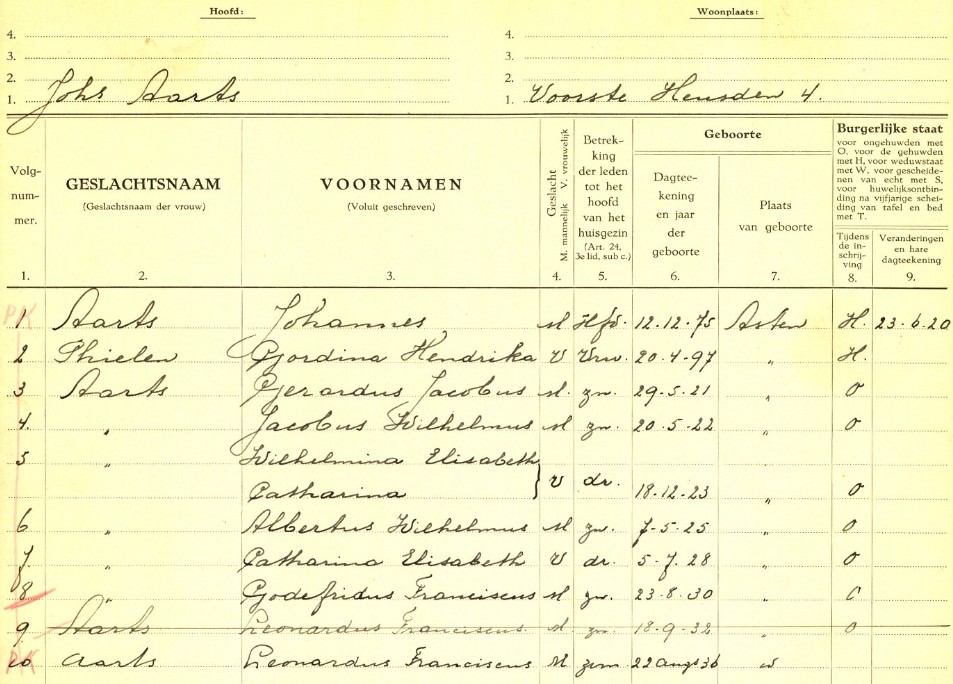 Hoofd:
Woonplaats:
4.
4.
3.
3.
2.
2.
1. Johs Aarts
1. Voorste Heusden 4.
Volg-
num-
mer.
GESLACHTSNAAM
(Geslachtsnaam der vrouw)
VOORNAMEN
(Voluit geschreven)
Geslacht
M. mannelijk V. vrouwelijk
Betrek-
king
der leden
tot het
hoofd
van het
huisgezin
(Art. 24,
3e lid, sub c.)
Geboorte
Dagtee-
kening
en jaar
der
geboorte
Plaats
van geboorte
Burgerlijke staat
voor ongehuwden met
O, voor de gehuwden
met H, voor weduwstaat
met W, voor gescheide-
nen van echt met S,
voor huwelijksontbin-
ding na vijfjarige schei-
ding van tafel en bed
met T.
Tijdens
de in-
schrij-
ving
Veranderingen
en hare
dagteekening
1. 2. 3. 4. 5. 6. 7. 8. 9.
PK
1 Aarts Johannes M Hfd. 12.12.75 Asten H. 23-6-20
2 Thielen Gordina Hendrika V Vrw. 20-4-97 „ H.
3 Aarts Gerardus Jacobus M. zn. 29-5-21 „ O
4. „ Jacobus Wilhelmus M zn. 20-5-22 „ O
5 „ Wilhelmina Elisabeth
Catharina } V dr. 18-12-23 „ O
6 „ Albertus Wilhelmus M zn. 7-5-25 „ O
7. „ Catharina Elisabeth V dr. 5-7-28 „ O
8 „ Godefridus Franciscus M zn. 23-8-30 „
9 Aarts Leonardus Franciscus M zn. 18-9-32 „ O
PK
10 Aarts Leonardus Franciscus M zoon 22 Aug 36